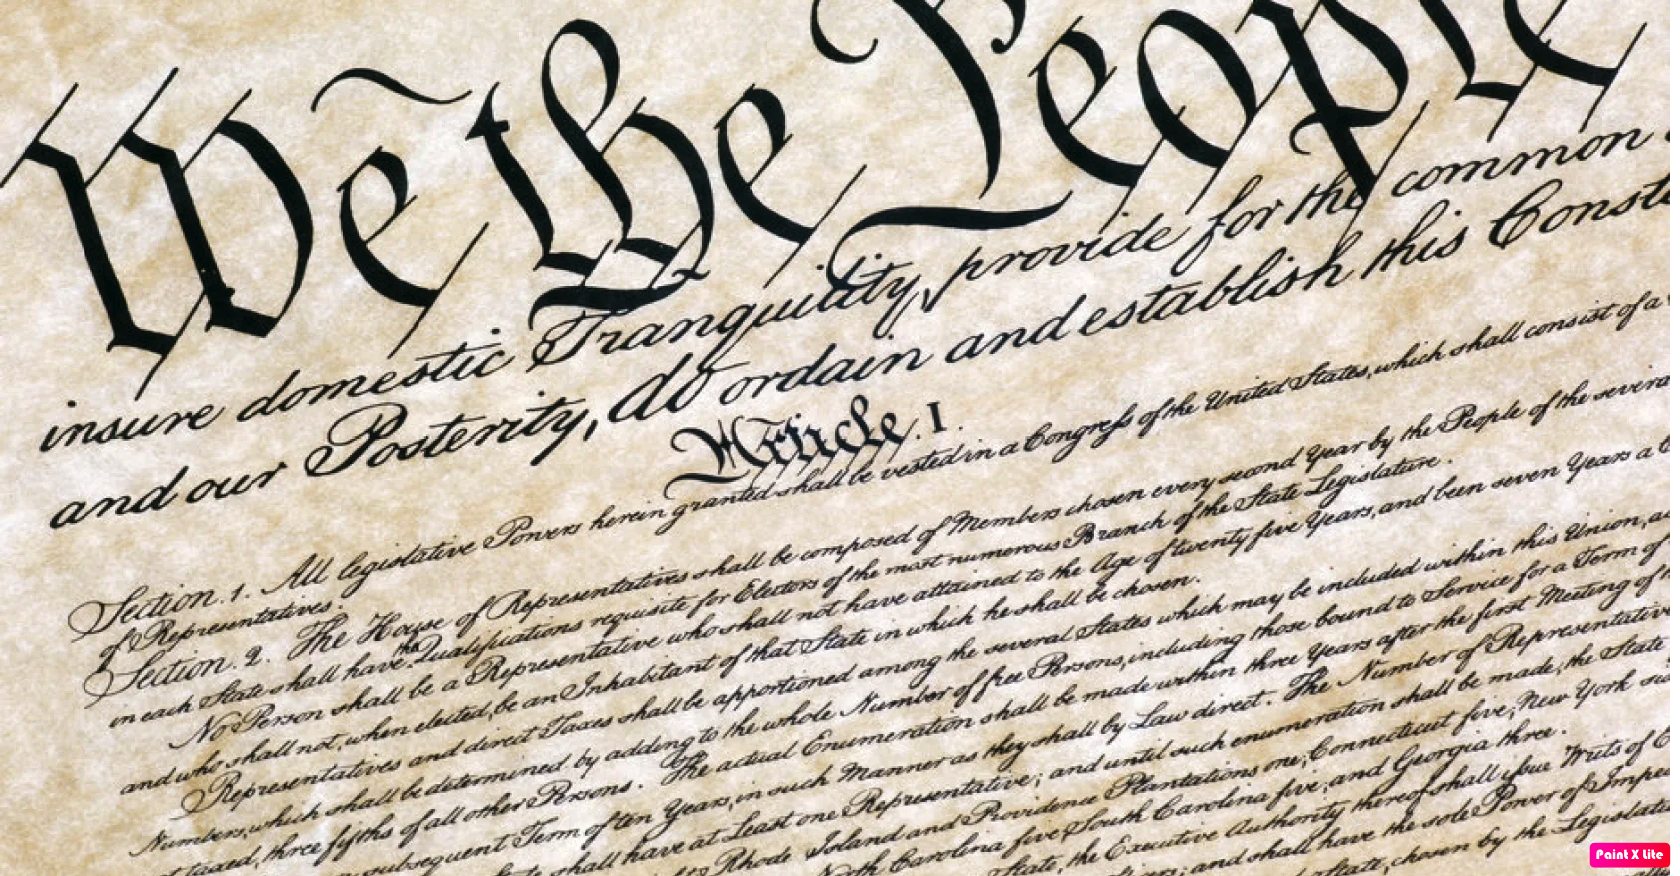 We the People
insure domestic Tranquility, provide for the common
and our Posterity, do ordain and establish this Const
Article. I.
Section. 1. All legislative Powers herein granted shall be vested in a Congress of the United States, which shall consist of a
of Representatives.
Section. 2. The House of Representatives shall be composed of Members chosen every second Year by the People of the severa
in each State shall have the Qualifications requisite for Electors of the most numerous Branch of the State Legislature.
No Person shall be a Representative who shall not have attained to the Age of twenty five Years, and been seven Years a C
and who shall not, when elected, be an Inhabitant of that State in which he shall be chosen.
Representatives and direct Taxes shall be apportioned among the several States which may be included within this Union, a
Numbers, which shall be determined by adding to the whole Number of free Persons, including those bound to Service for a Term of
taxed, three fifths of all other Persons. The actual Enumeration shall be made within three Years after the first Meeting of
subsequent Term of ten Years, in such Manner as they shall by Law direct. The Number of Representatives
shall have at Least one Representative; and until such enumeration shall be made, the State
Rhode Island and Providence Plantations one, Connecticut five, New York six
North Carolina five, South Carolina five, and Georgia three.
State, the Executive Authority thereof shall issue Writs of E
and shall have the sole Power of Impe
State, chosen by the Legislatu
Paint X Lite